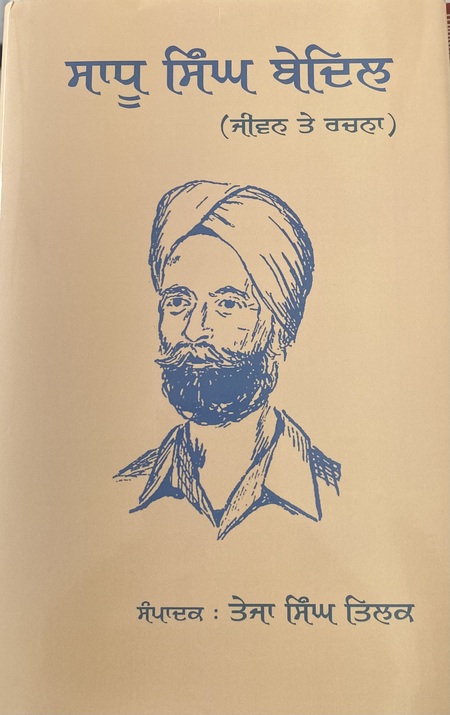 ਸਾਧੂ ਸਿੰਘ ਬੇਦਿਲ
(ਜੀਵਨ ਤੇ ਰਚਨਾ)
ਸੰਪਾਦਕ : ਤੇਜਾ ਸਿੰਘ ਤਿਲਕ